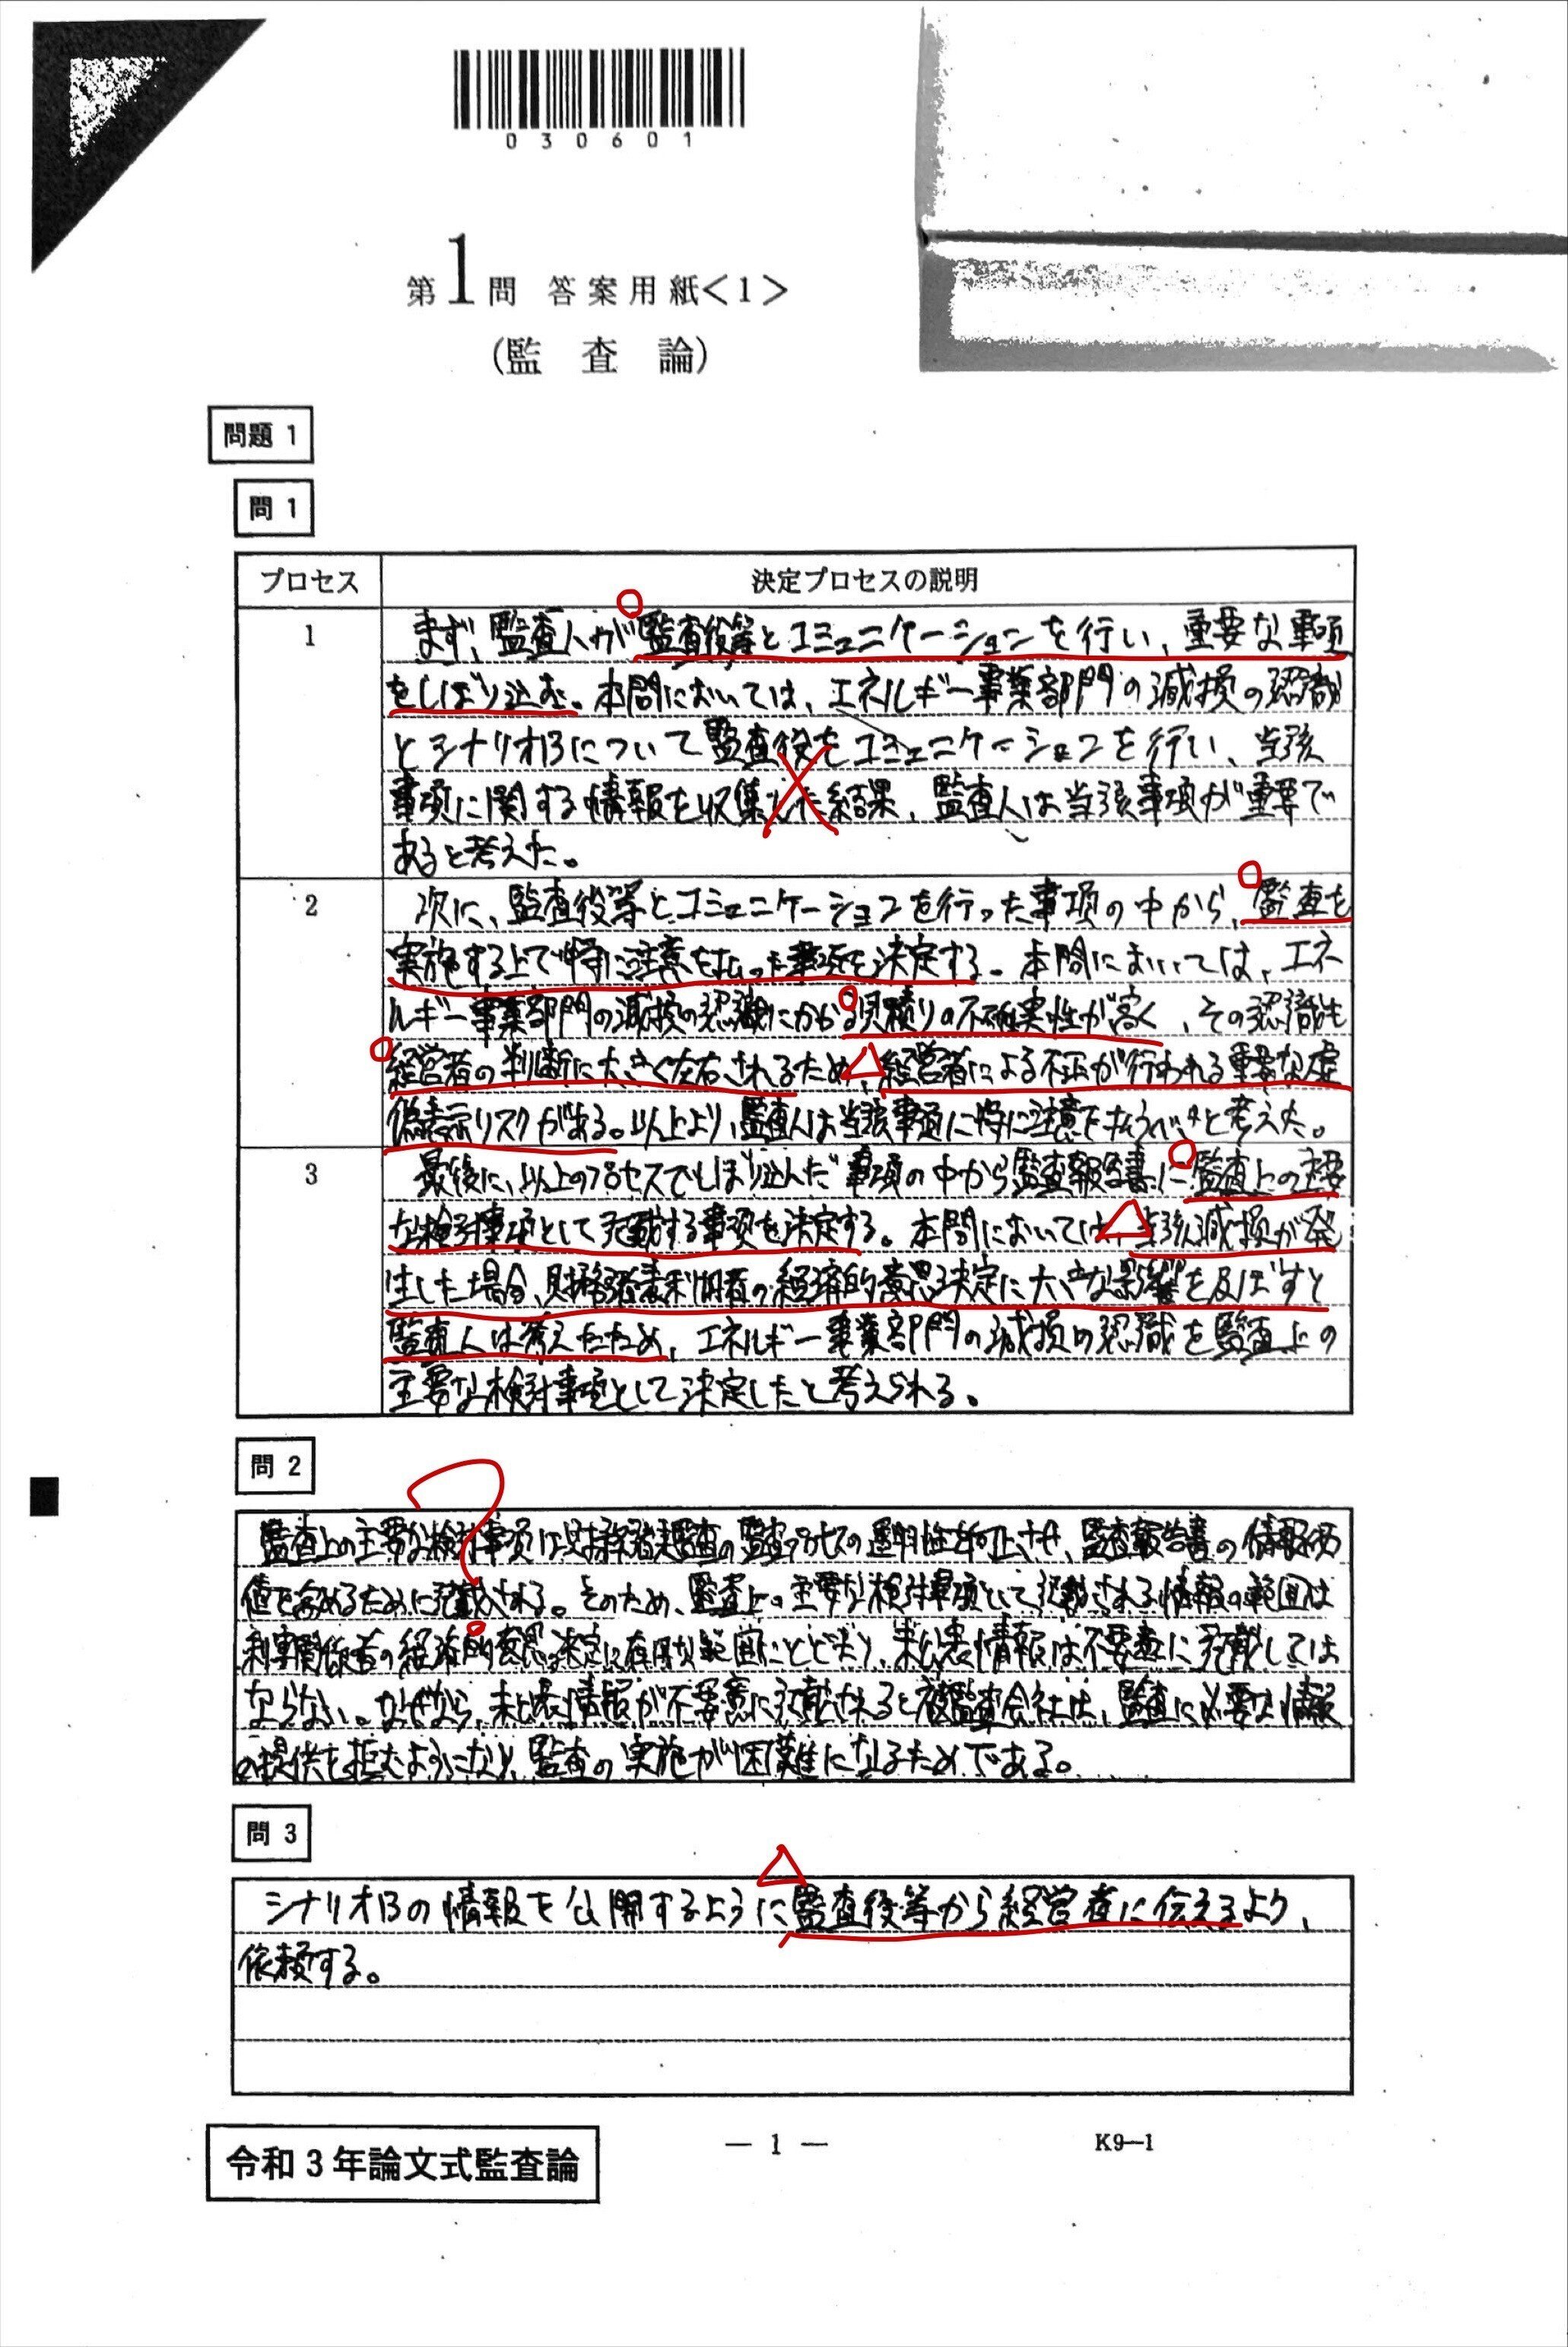 030601
第1問 答案用紙<1>
(監査論)
問題 1
問 1
プロセス 決定プロセスの説明
1 まず、監査人が監査役等とコミュニケーションを行い、重要な事項
をしぼり込む。本問においては、エネルギー事業部門の減損の認識
とシナリオBについて監査役とコミュニケーションを行い、当該
事項に関する情報を収集した結果、監査人は当該事項が重要で
あると考えた。
2 次に、監査役等とコミュニケーションを行った事項の中から、監査を
実施する上で特に注意を払った事項を決定する。本問においては、エネ
ルギー事業部門の減損の認識にかかる見積りの不確実性が高く、その認識も
経営者の判断に大きく左右されるため、経営者による不正が行われる重要な虚
偽表示リスクがある。以上より、監査人は当該事項に特に注意を払うべきと考えた。
3 最後に、以上のプロセスでしぼり込んだ事項の中から監査報告書に監査上の主要
な検討事項として記載する事項を決定する。本問においては、当該減損が発
生した場合、財務諸表利用者の経済的意思決定に大きな影響を及ぼすと
監査人は考えたため、エネルギー事業部門の減損の認識を監査上の
主要な検討事項として決定したと考えられる。
問 2
監査上の主要な検討事項は財務諸表監査の監査プロセスの透明性を向上させ、監査報告書の情報価
値を高めるために記載される。そのため、監査上の主要な検討事項として記載される情報の範囲は
利害関係者の経済的意思決定に有用な範囲にとどまり、未公表情報は不要意に記載しては
ならない。なぜなら、未公表情報が不要意に記載されると被監査会社は、監査に必要な情報
の提供を拒むようになり、監査の実施が困難になるためである。
問 3
シナリオBの情報を公開するように監査役等から経営者に伝えるよう、
依頼する。
— 1 —
K9—1
令和3年論文式監査論